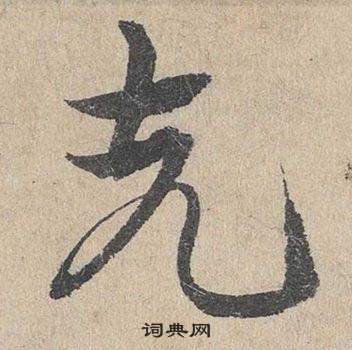 克
词典网